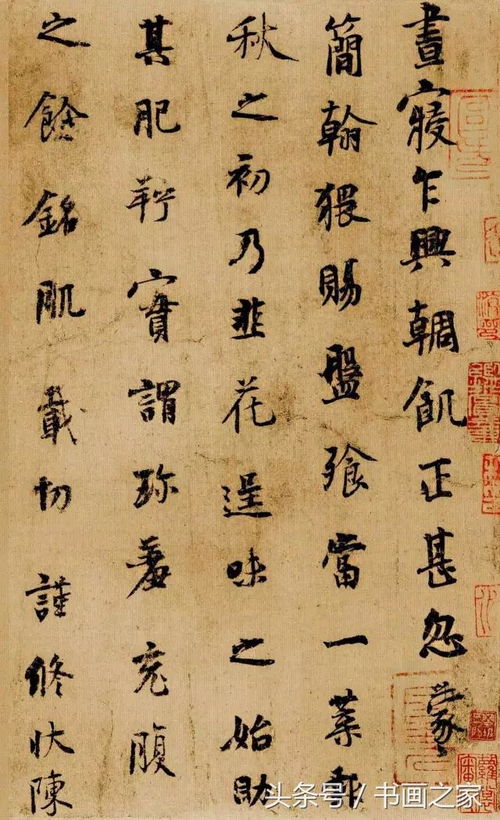 晝寢乍興輖飢正甚忽蒙
簡翰猥賜盤飧當一葉報
秋之初乃韭花逞味之始助
其肥羜實謂珍羞充腹
之餘銘肌載切謹修狀陳
头条号/书画之家